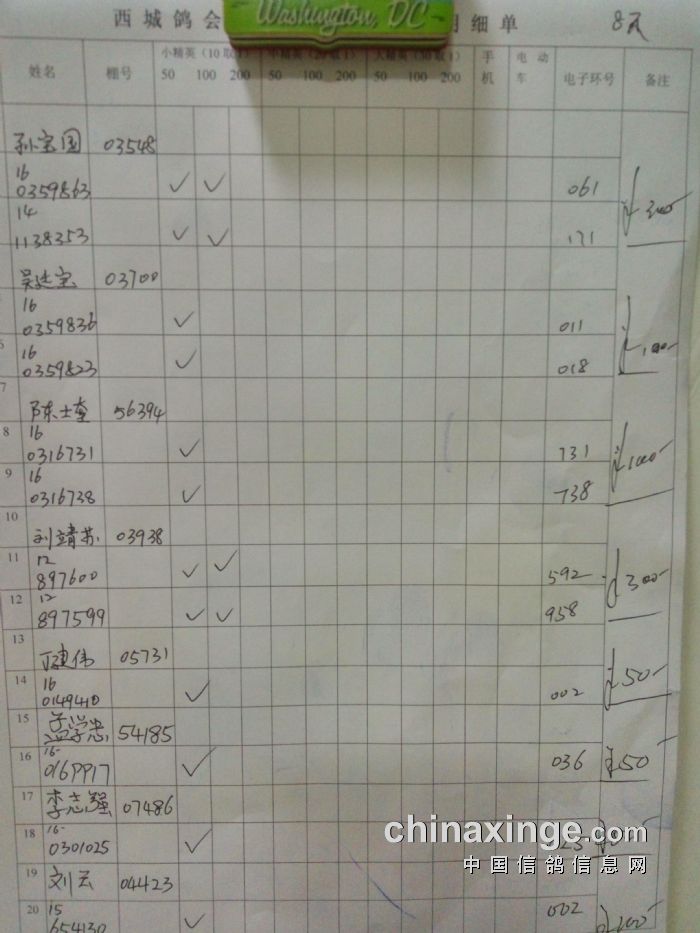 Washington, DC
西城鸽会 细单 8
姓名 棚号 小精英（10取1） 中精英（20取1） 大精英（30取1） 手机 电动车 电子环号 备注
50 100 200 50 100 200 50 100 200
孙宝国 03548
16
0359863 ✓ ✓ 061
14
1138353 ✓ ✓ 171
¥300-
03700
16
0359836 ✓ 011
16
0359823 ✓ 018
¥100-
7 陈士奎 56394
8 16
0316731 ✓ 731
9 16
0316738 ✓ 738
¥100-
10 刘靖苏 03938
11 12
897600 ✓ ✓ 592
12 12
897599 ✓ ✓ 958
¥300-
13 建伟 05731
14 16
0149410 ✓ 002
¥50-
15 孟学忠 54185
16 16
0169917 ✓ 036
¥50
17 李志强 07486
18 16
0301025 ✓
19 刘云 04423
20 15
654130 ✓ 002
chinaxinge.com
中国信鸽信息网